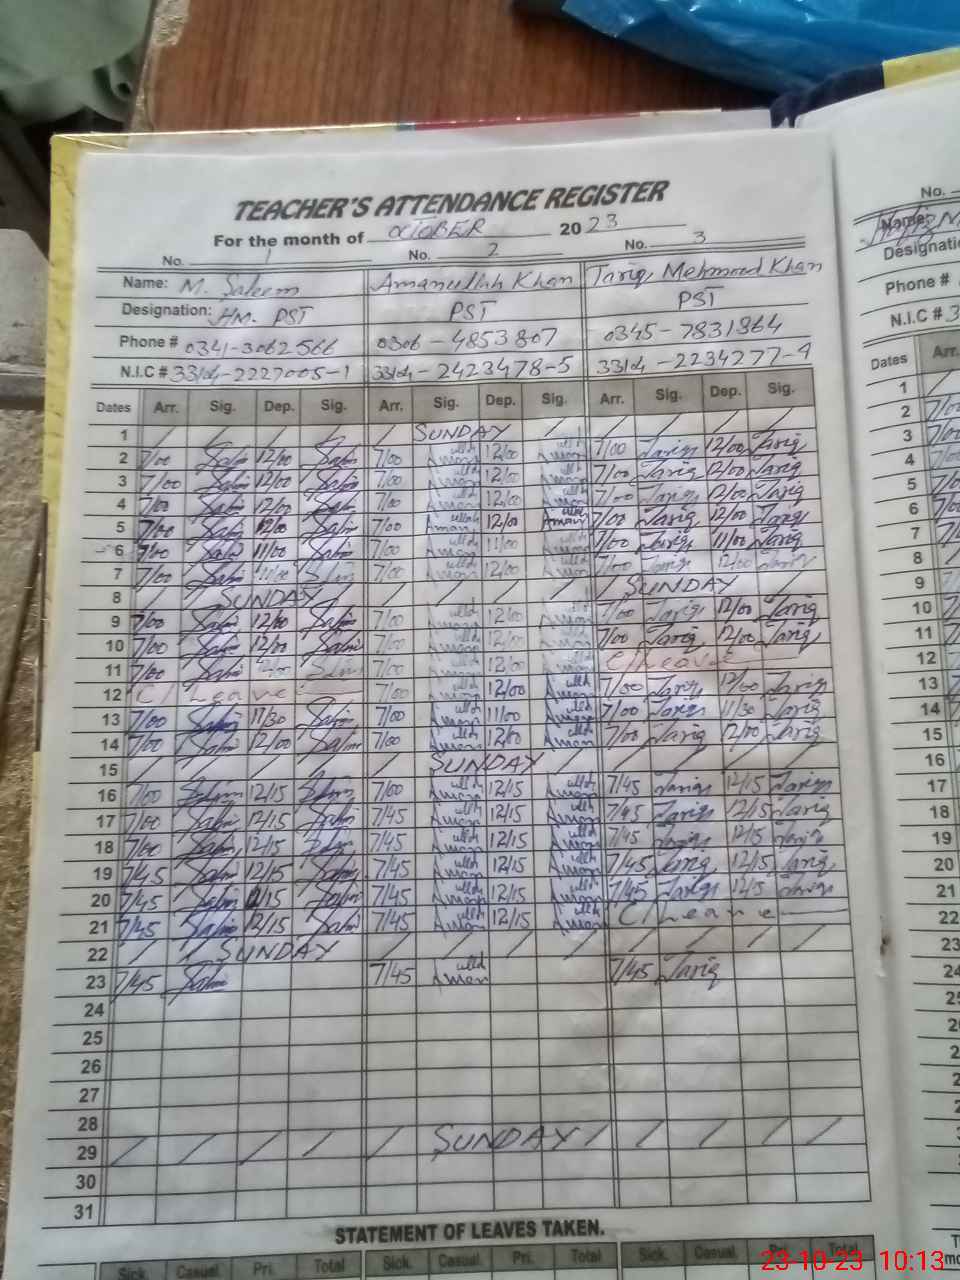 TEACHER'S ATTENDANCE REGISTER
For the month of OCTOBER 2023
No. 1 No. 2 No. 3
Name: M. Saleem Amanullah Khan Tariq Mehmood Khan
Designation: HM. PST PST PST
Phone # 0341-3062566 0306-4853807 0345-7831864
N.I.C # 33104-2227005-1 33104-2423478-5 33104-2234277-9
Dates Arr. Sig. Dep. Sig. Arr. Sig. Dep. Sig. Arr. Sig. Dep. Sig.
1 SUNDAY
2 7/00 Salim 12/00 Salim 7/00 Amanullah 12/00 Amanullah 7/00 Tariq 12/00 Tariq
3 7/00 Salim 12/00 Salim 7/00 Amanullah 12/00 Amanullah 7/00 Tariq 12/00 Tariq
4 7/00 Salim 12/00 Salim 7/00 Amanullah 12/00 Amanullah 7/00 Tariq 12/00 Tariq
5 7/00 Salim 12/00 Salim 7/00 Amanullah 12/00 Amanullah 7/00 Tariq 12/00 Tariq
6 7/00 Salim 11/00 Salim 7/00 Amanullah 11/00 Amanullah 7/00 Tariq 11/00 Tariq
7 7/00 Salim 7/00 Amanullah 12/00 Amanullah 7/00 Tariq 12/00 Tariq
8 SUNDAY SUNDAY
9 7/00 Salim 12/00 Salim 7/00 Amanullah 12/00 Amanullah 7/00 Tariq 12/00 Tariq
10 7/00 Salim 12/00 Salim 7/00 Amanullah 12/00 Amanullah 7/00 Tariq 12/00 Tariq
11 7/00 Salim 12/00 Salim 7/00 Amanullah 12/00 Amanullah C/Leave
12 C/Leave 7/00 Amanullah 12/00 Amanullah 7/00 Tariq 12/00 Tariq
13 7/00 Salim 11/30 Salim 7/00 Amanullah 11/00 Amanullah 7/00 Tariq 11/30 Tariq
14 7/00 Salim 12/00 Salim 7/00 Amanullah 12/00 Amanullah 7/00 Tariq 12/00 Tariq
15 SUNDAY
16 7/00 Salim 12/15 Salim 7/00 Amanullah 12/15 Amanullah 7/45 Tariq 12/15 Tariq
17 7/00 Salim 12/15 Salim 7/45 Amanullah 12/15 Amanullah 7/45 Tariq 12/15 Tariq
18 7/00 Salim 12/15 Salim 7/45 Amanullah 12/15 Amanullah 7/45 Tariq 12/15 Tariq
19 7/45 Salim 12/15 Salim 7/45 Amanullah 12/15 Amanullah 7/45 Tariq 12/15 Tariq
20 7/45 Salim 12/15 Salim 7/45 Amanullah 12/15 Amanullah 7/45 Tariq 12/15 Tariq
21 7/45 Salim 12/15 Salim 7/45 Amanullah 12/15 Amanullah C/Leave
22 SUNDAY
23 7/45 Salim 7/45 Amanullah 7/45 Tariq
24
25
26
27
28
29 SUNDAY
30
31
STATEMENT OF LEAVES TAKEN.
Sick. Casual. Pri. Total Sick. Casual. Pri. Total Sick. Casual. Total
No.
Name:
Designation
Phone #
N.I.C # 3
Dates Arr.
1
2 7/00
3 7/00
4
5
6
7
8
9
10
11
12
13
14
15
16
17
18
19
20
21
22
23
24
23-10-23 10:13